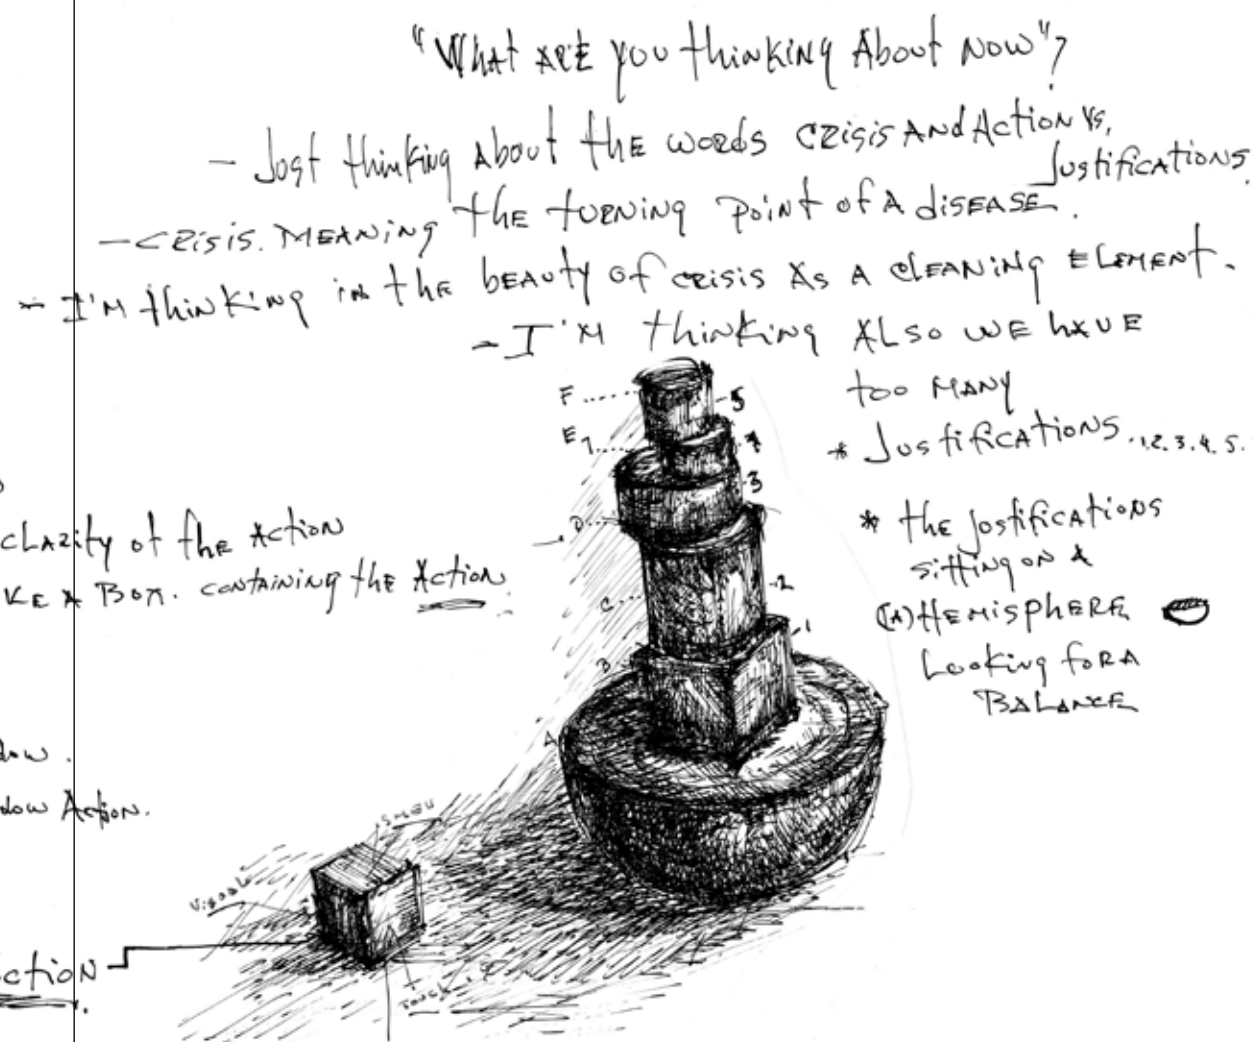 "What ARE you thinking About Now"?
- Just thinking About the words CRisis ANd Action vs.
Justifications.
- CRisis. MEANing the tuRNiNg Point of A disEASE.
- I'M thinking in the bEAuty of cRisis As A clEANiNg ElEMENT.
- I'M thinking ALSo WE hAVE
too MANy
* Justifications..1.2.3.4.5.
F...... -5
E
-3
* the justifications
sitting on A
(A) HEMisphERE
Looking foR A
BALANCE
D...
-2
C...
1
B
A
claRity of the Action
KE A Box. containing the Action
dow.
dow Action.
SMELL
Visual
ction
Touch